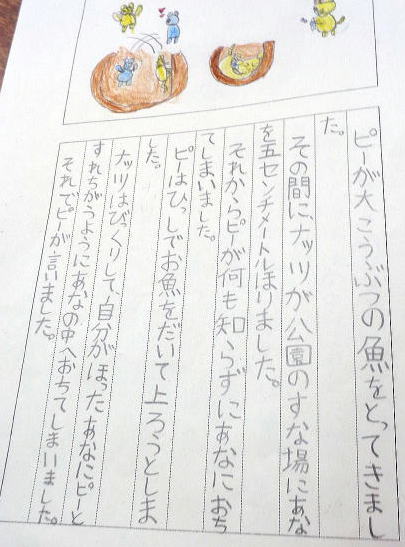 ピーが大こうぶつの魚をとってきまし
た。
その間に、ナッツが公園のすな場にあな
を五センチメートルほりました。
それからピーが何も知らずにあなにおち
てしまいました。
ピーはひっしでお魚をだいて上ろうとしま
した。
ナッツはびっくりして、自分がほったあなにピーと
すれちがうようにあなの中へおちてしまいました。
それでピーが言いました。